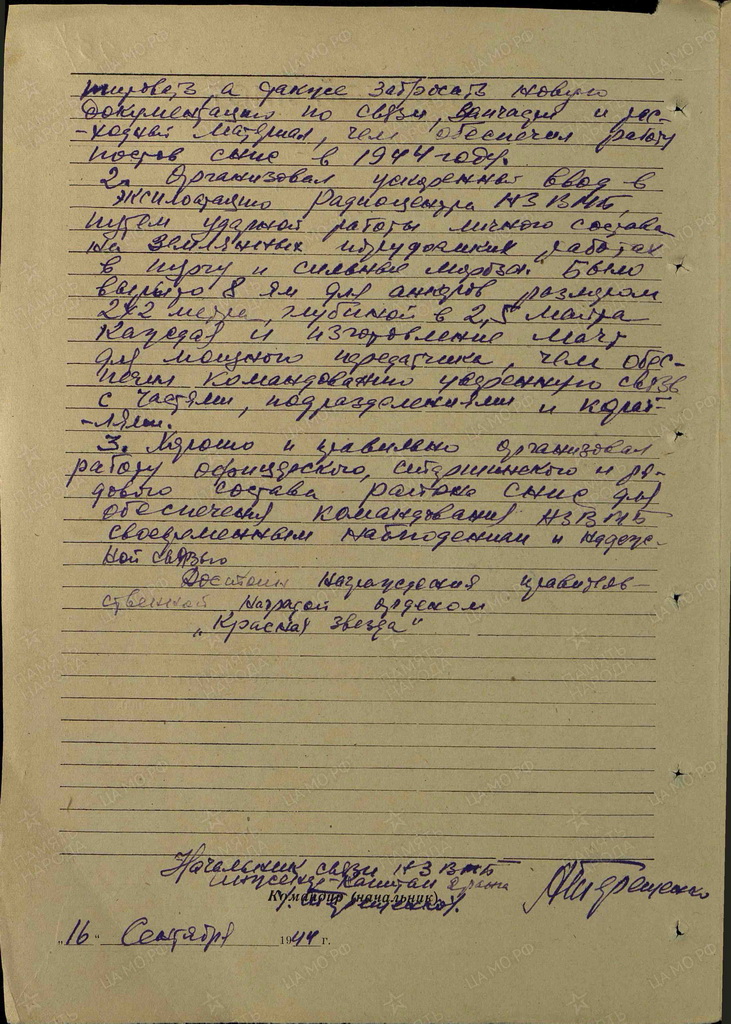 тировать а также забросить новую
документацию по связи, запчасти и рас-
-ходный материал, чем обеспечил работу
постов снис в 1944 году.
2. Организовал ускоренный ввод в
эксплоатацию Радиоцентра НЗ ВМБ,
путем ударной работы личного состава
на земляных трудоемких работах
в пургу и сильные морозы. Было
вырыто 8 ям для анкеров размером
2х2 метра, глубиной в 2,5 метра
Каждая и изготовление мачт
для мощного передатчика, чем обес-
печил командованию уверенную связь
с частями, подразделениями и кораб-
-лями.
3. Хорошо и правильно организовал
работу офицерского, старшинского и ря-
дового состава района снис для
обеспечения командования НЗ ВМБ
своевременным наблюдением и надеж-
ной связью
Достоин награждения правитель-
ственной наградой орденом
„Красная звезда"
Начальник связи НЗ ВМБ
инженер-капитан 2 ранга
Командир (начальник)
„16" Сентября 1944 г.
ПАМЯТЬ НАРОДА
ЦАМО.РФ